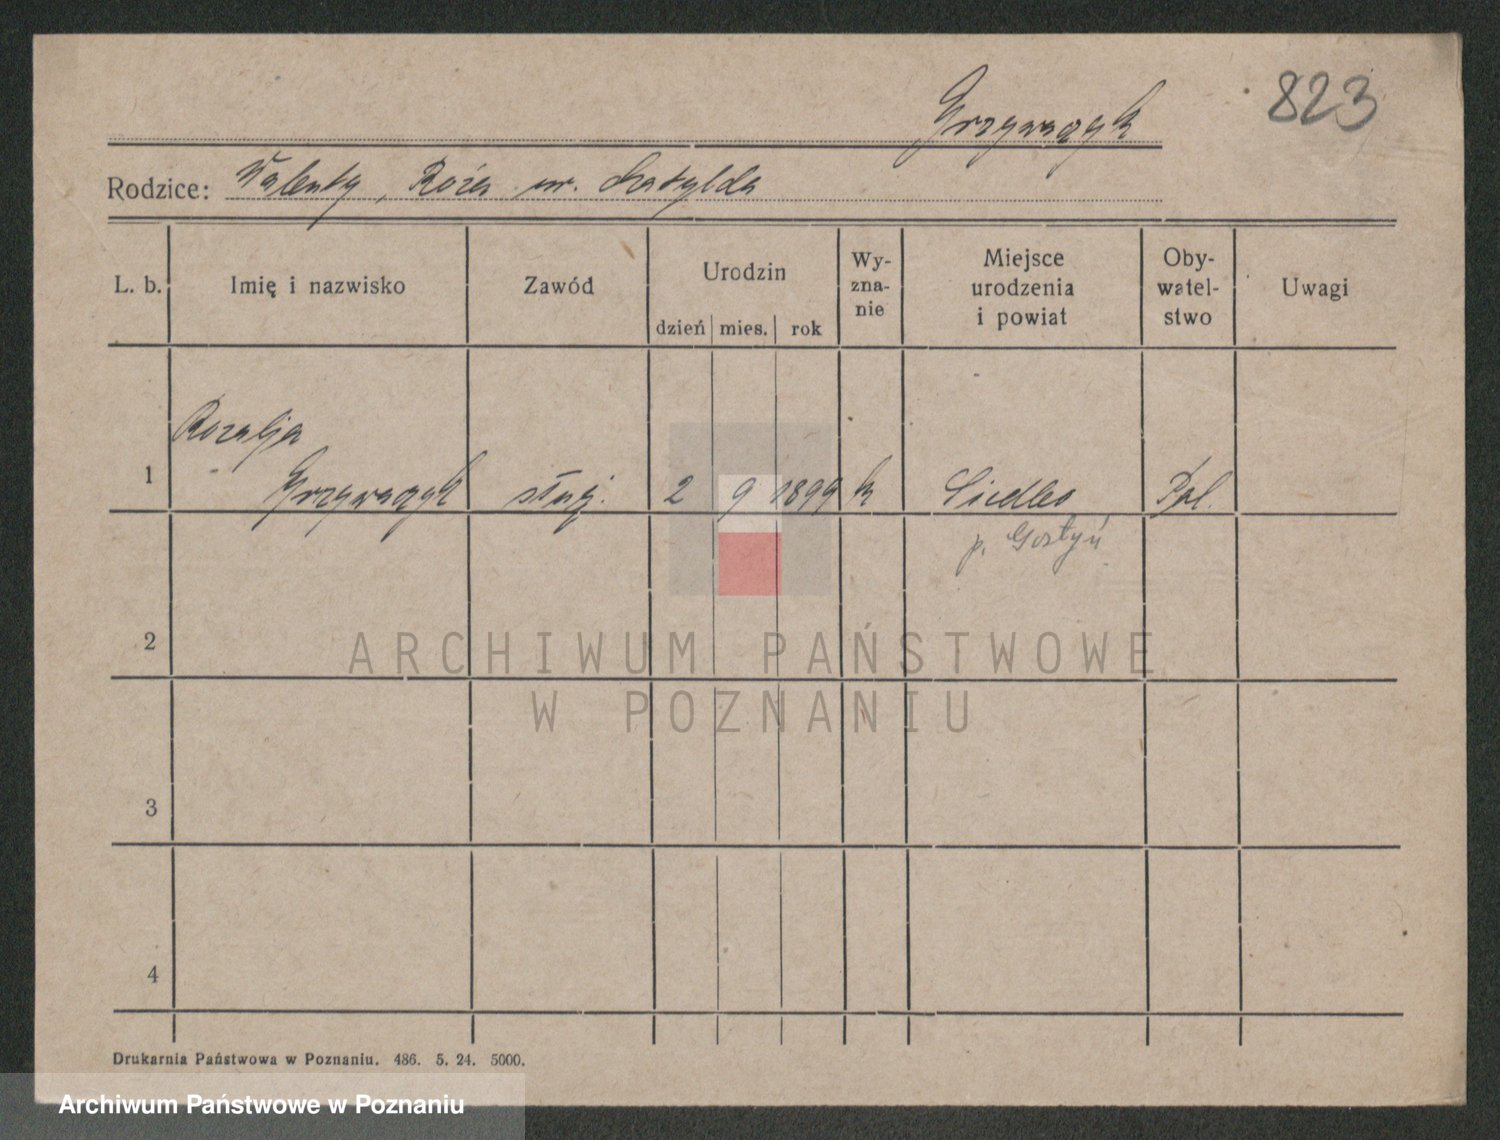 823
Grzywaczyk
Rodzice: Walenty, Róża ur. Ratylda
L. b.
Imię i nazwisko
Zawód
Urodzin
dzień mies. rok
Wy-
zna-
nie
Miejsce
urodzenia
i powiat
Oby-
watel-
stwo
Uwagi
1
Rozalja
Grzywaczyk
służ.
2
9
1899
k
Siedlec
Pol.
p. Gostyń
2
3
4
ARCHIWUM PAŃSTWOWE
W POZNANIU
Drukarnia Państwowa w Poznaniu. 486. 5. 24. 5000.
Archiwum Państwowe w Poznaniu